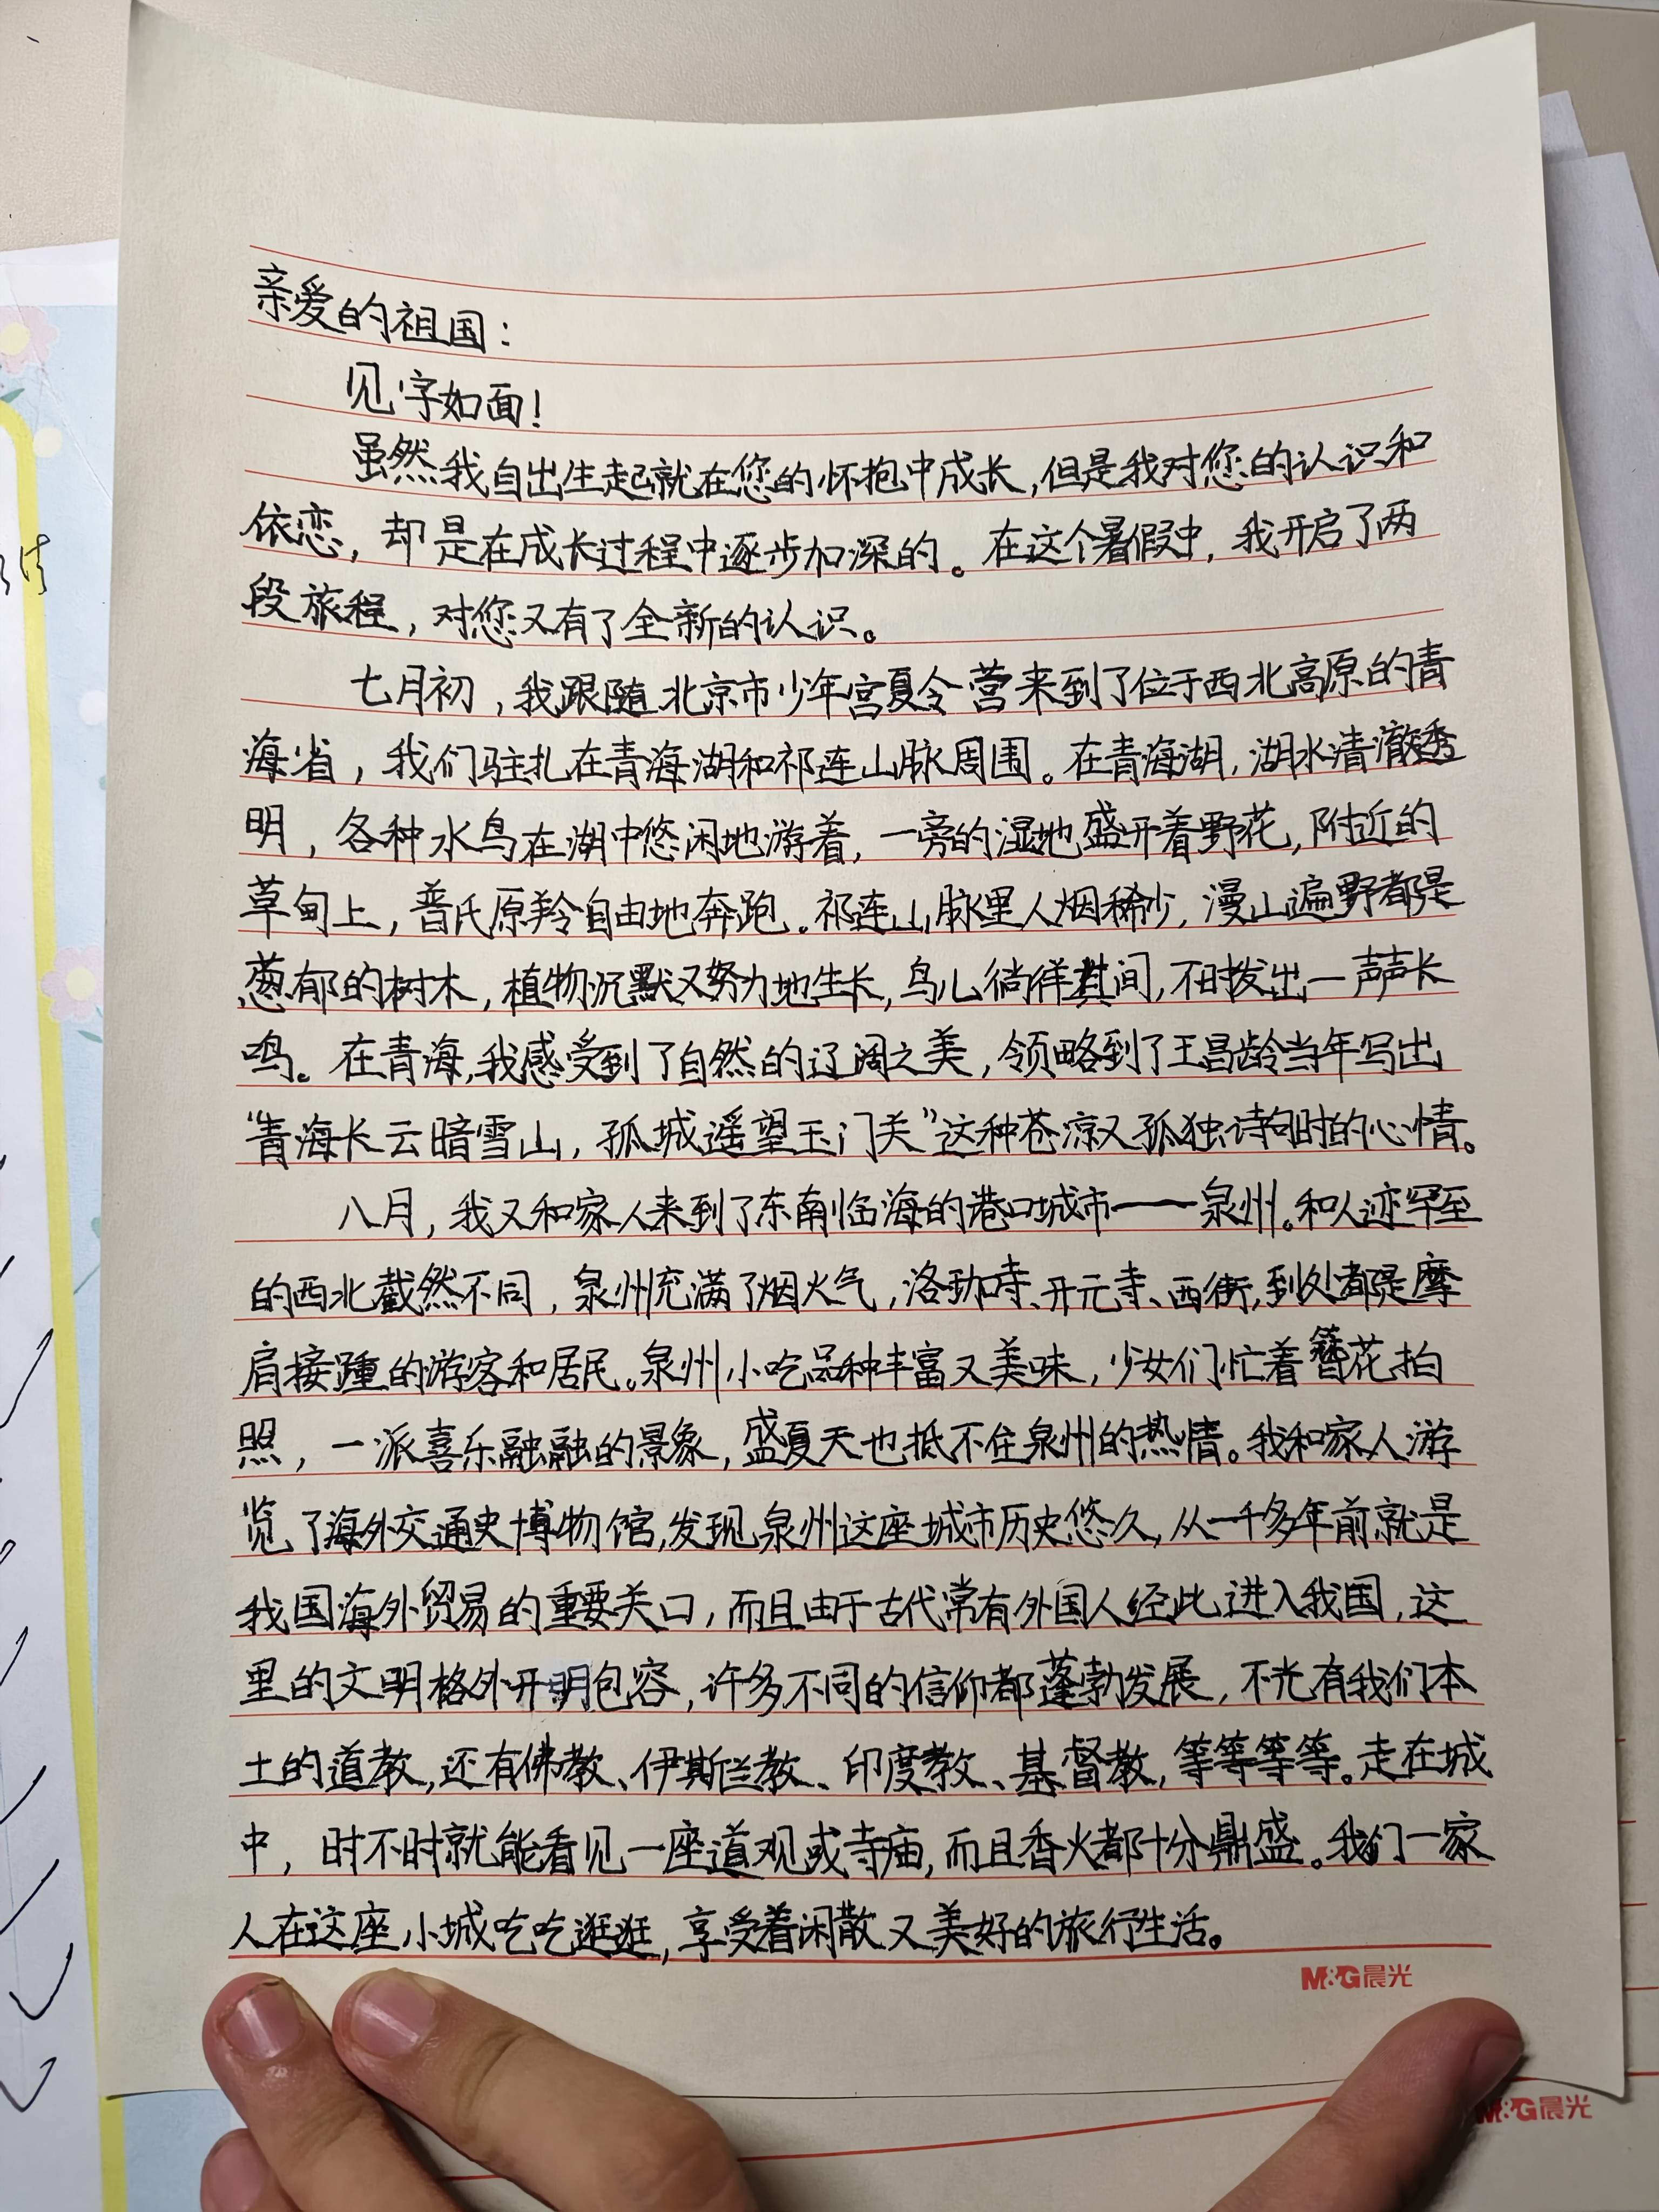 亲爱的祖国：
见字如面！
虽然我自出生起就在您的怀抱中成长，但是我对您的认识和
依恋，却是在成长过程中逐步加深的。在这个暑假中，我开启了两
段旅程，对您又有了全新的认识。
七月初，我跟随北京市少年宫夏令营来到了位于西北高原的青
海省，我们驻扎在青海湖和祁连山脉周围。在青海湖，湖水清澈透
明，各种水鸟在湖中悠闲地游着，一旁的湿地盛开着野花，附近的
草甸上，普氏原羚自由地奔跑。祁连山脉里人烟稀少，漫山遍野都是
葱郁的树木，植物沉默又努力地生长，鸟儿徜徉其间，不时发出一声声长
鸣。在青海，我感受到了自然的辽阔之美，领略到了王昌龄当年写出
“青海长云暗雪山，孤城遥望玉门关”这种苍凉又孤独诗句时的心情。
八月，我又和家人来到了东南临海的港口城市——泉州。和人迹罕至
的西北截然不同，泉州充满了烟火气，洛珈寺、开元寺、西街，到处都是摩
肩接踵的游客和居民。泉州小吃品种丰富又美味，少女们忙着簪花拍
照，一派喜乐融融的景象，盛夏天也抵不住泉州的热情。我和家人游
览了海外交通史博物馆，发现泉州这座城市历史悠久，从一千多年前就是
我国海外贸易的重要关口，而且由于古代常有外国人经此进入我国，这
里的文明格外开明包容，许多不同的信仰都蓬勃发展，不光有我们本
土的道教，还有佛教、伊斯兰教、印度教、基督教，等等等等。走在城
中，时不时就能看见一座道观或寺庙，而且香火都十分鼎盛。我们一家
人在这座小城吃吃逛逛，享受着闲散又美好的旅行生活。
M&G晨光
M&G晨光